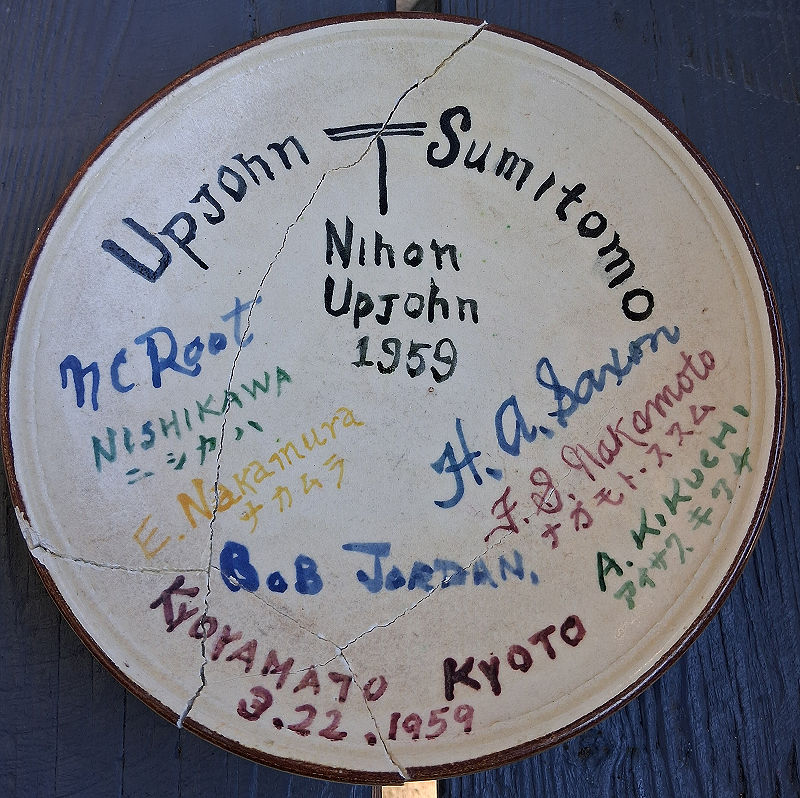 Upjohn Sumitomo
Nihon
Upjohn
1959
NC Root
NISHIKAWA
ニシカハ
E. Nakamura
ナカムラ
H. A. Saxon
F. S. Nakamoto
ナカモト・ススム
A. K. KUCHI
BOB JORDAN.
KYOYAMATO KYOTO
3.22.1959